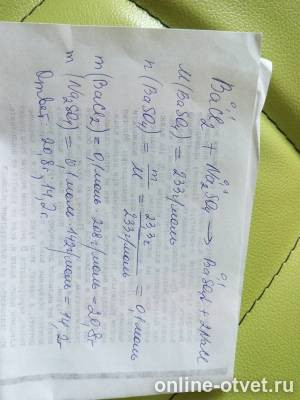 0,1 0,1 0,1
BaCl2 + Na2SO4 → BaSO4 + 2NaCl
M(BaSO4) = 233г/моль
n(BaSO4) = m/M = 23,3г/233г/моль = 0,1моль
m(BaCl2) = 0,1моль 208г/моль = 20,8г
m(Na2SO4) = 0,1моль 142г/моль = 14,2г
Ответ 20,8г, 14,2г
online-otvet.ru